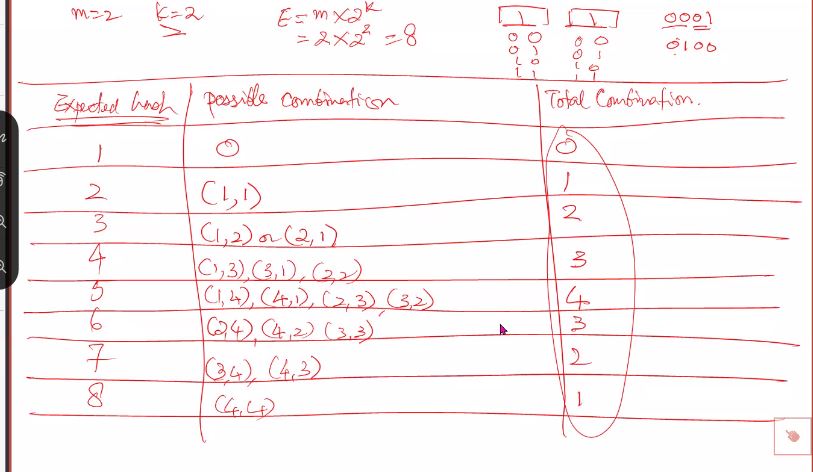 m=2 k=2 E = m×2^k
= 2×2^2 = 8
1 1 0001
0 0 0 0 0100
0 1 0 1
1 0 1 0
1 1 1 1
Expected hash possible combination Total Combination.
1 0 0
2 (1,1) 1
3 (1,2) or (2,1) 2
4 (1,3), (3,1), (2,2) 3
5 (1,4), (4,1), (2,3), (3,2) 4
6 (2,4), (4,2) (3,3) 3
7 (3,4), (4,3) 2
8 (4,4) 1